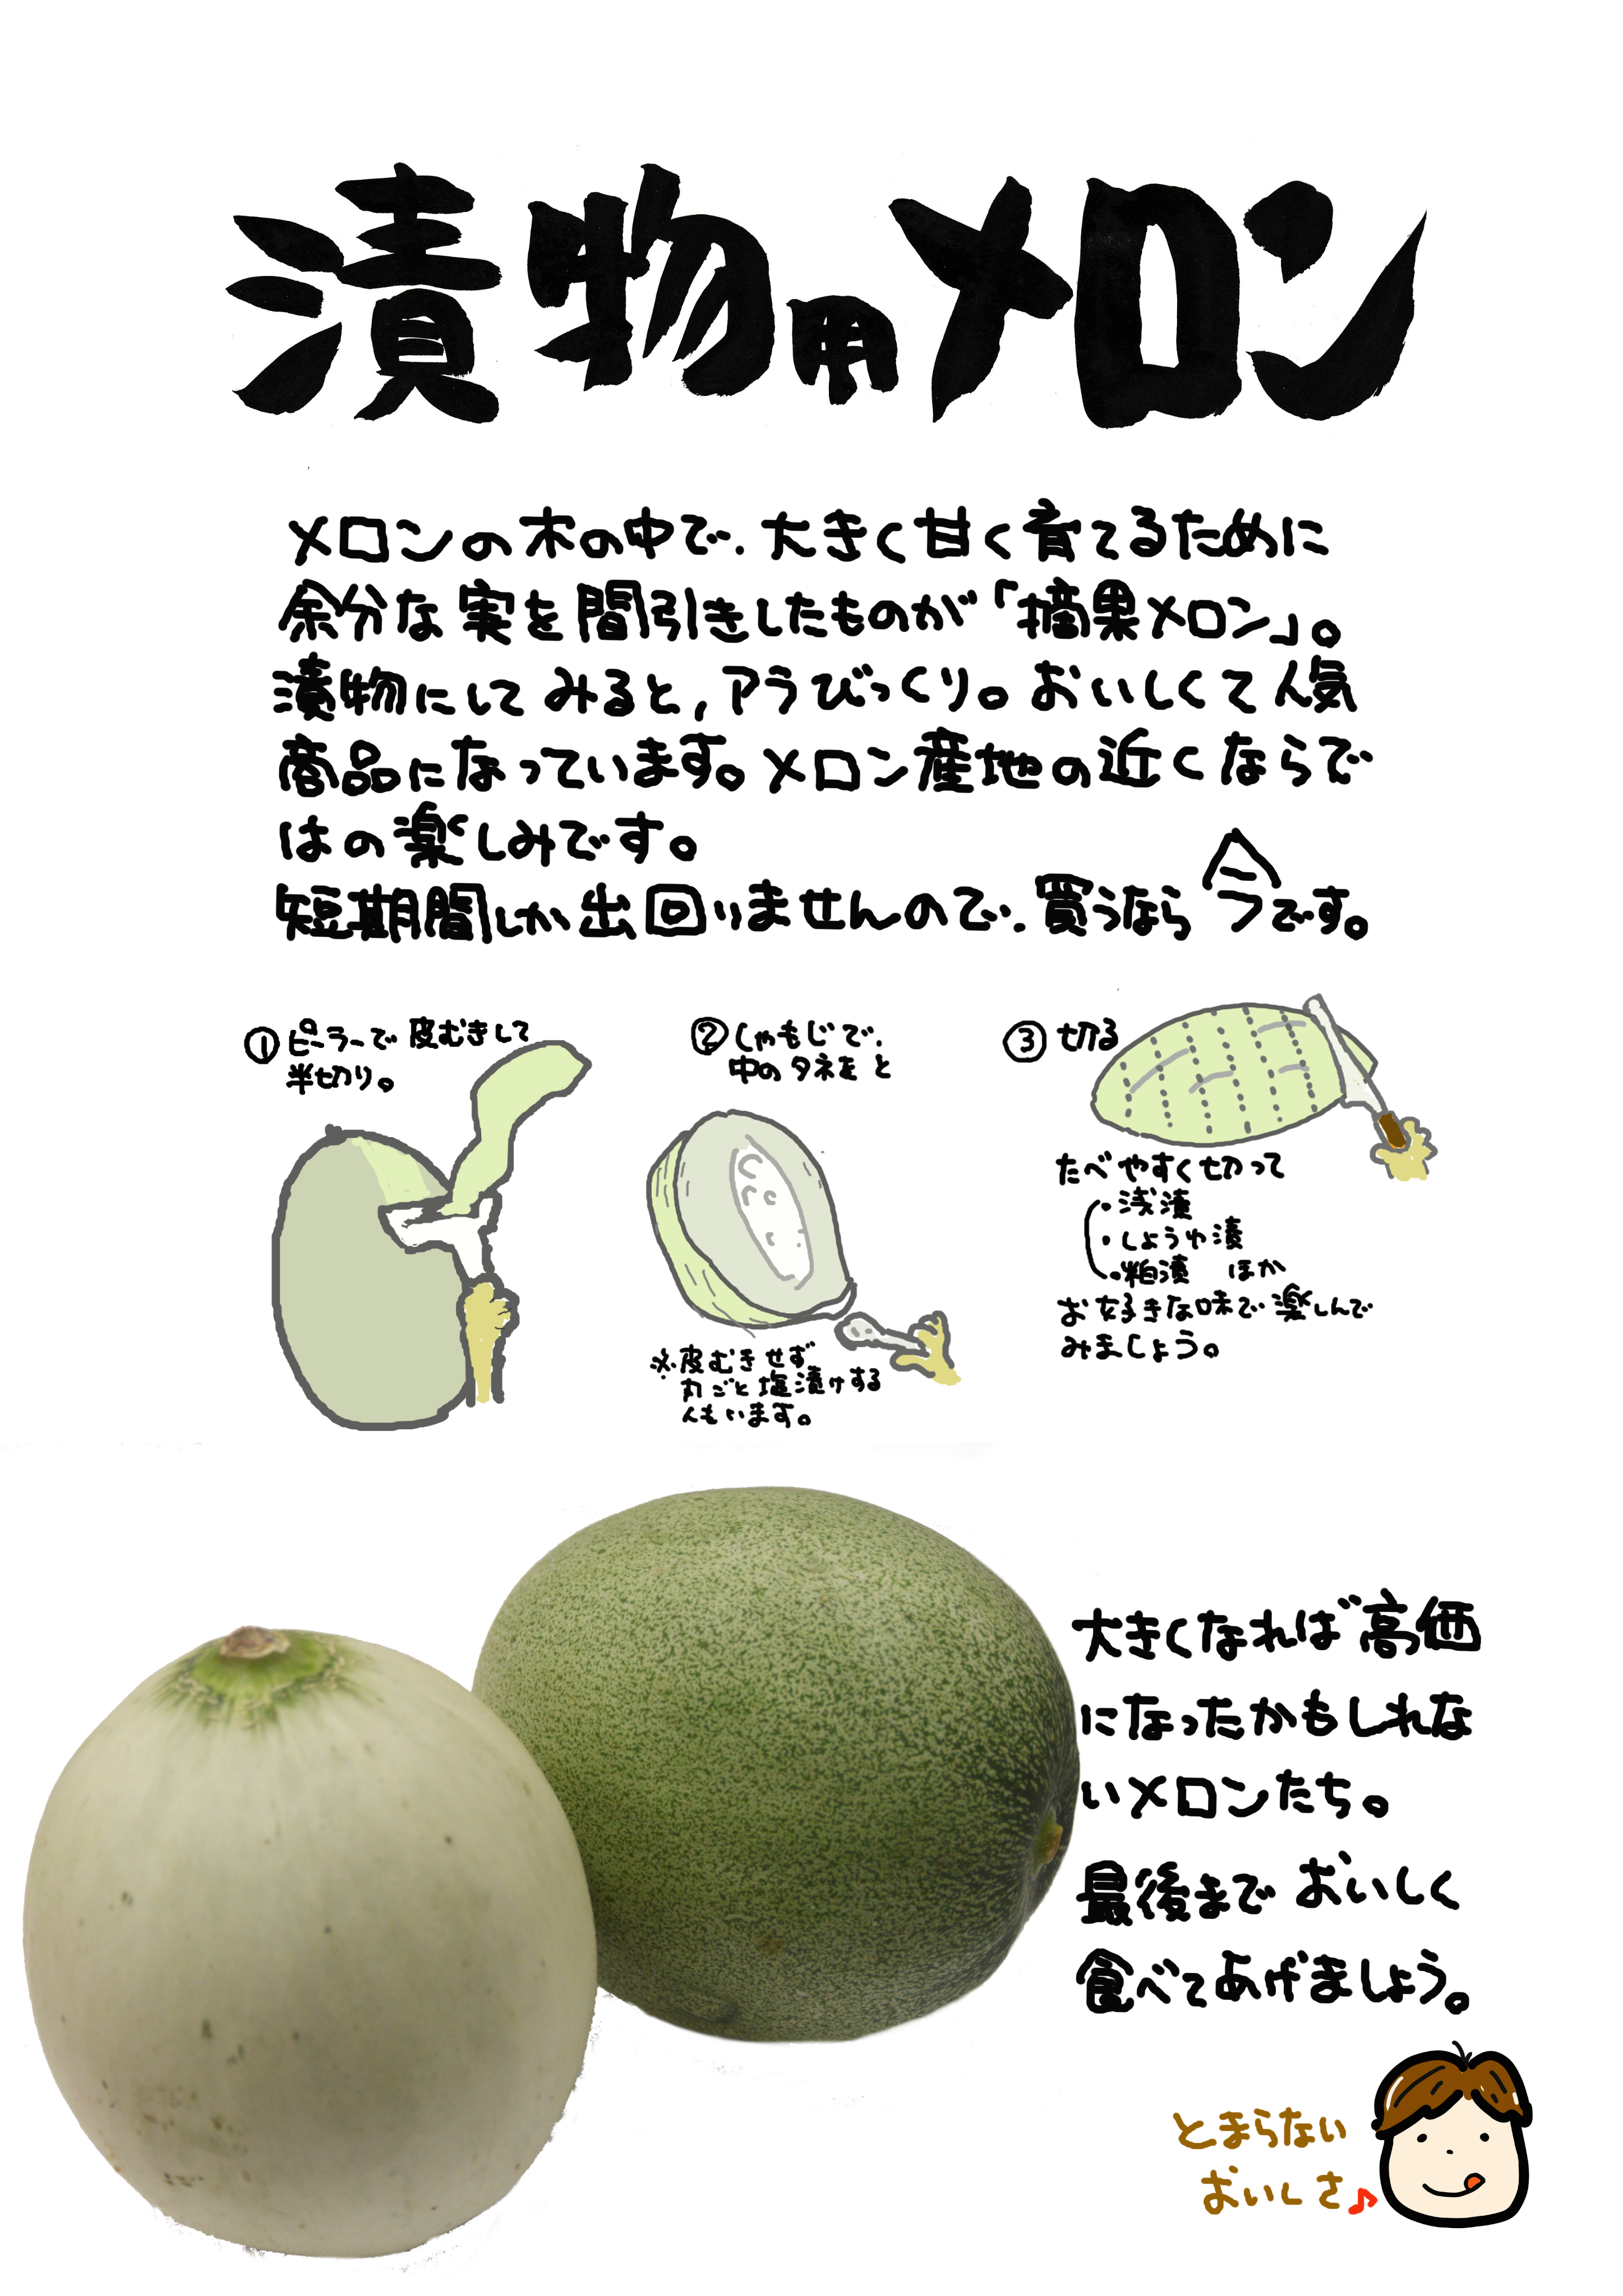 漬物用メロン
メロンの木の中で、大きく甘く育てるために
余分な実を間引きしたものが「摘果メロン」。
漬物にしてみると，アラびっくり。おいしくて人気
商品になっています。メロン産地の近くならで
はの楽しみです。
短期間しか出回りませんので、買うなら今です。
①ピーラーで皮むきして
半切り。
②しゃもじで、
中のタネをと
※皮むきせず
丸ごと塩漬けする
人もいます。
③切る
たべやすく切って
・浅漬
・しょうゆ漬
・粕漬 ほか
お好きな味で楽しんで
みましょう。
大きくなれば高価
になったかもしれな
いメロンたち。
最後までおいしく
食べてあげましょう。
とまらない
おいしさ♪